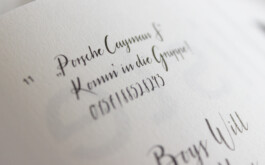 "
„Porsche Cayman S"
Komm' in die Gruppe!
Boys Will